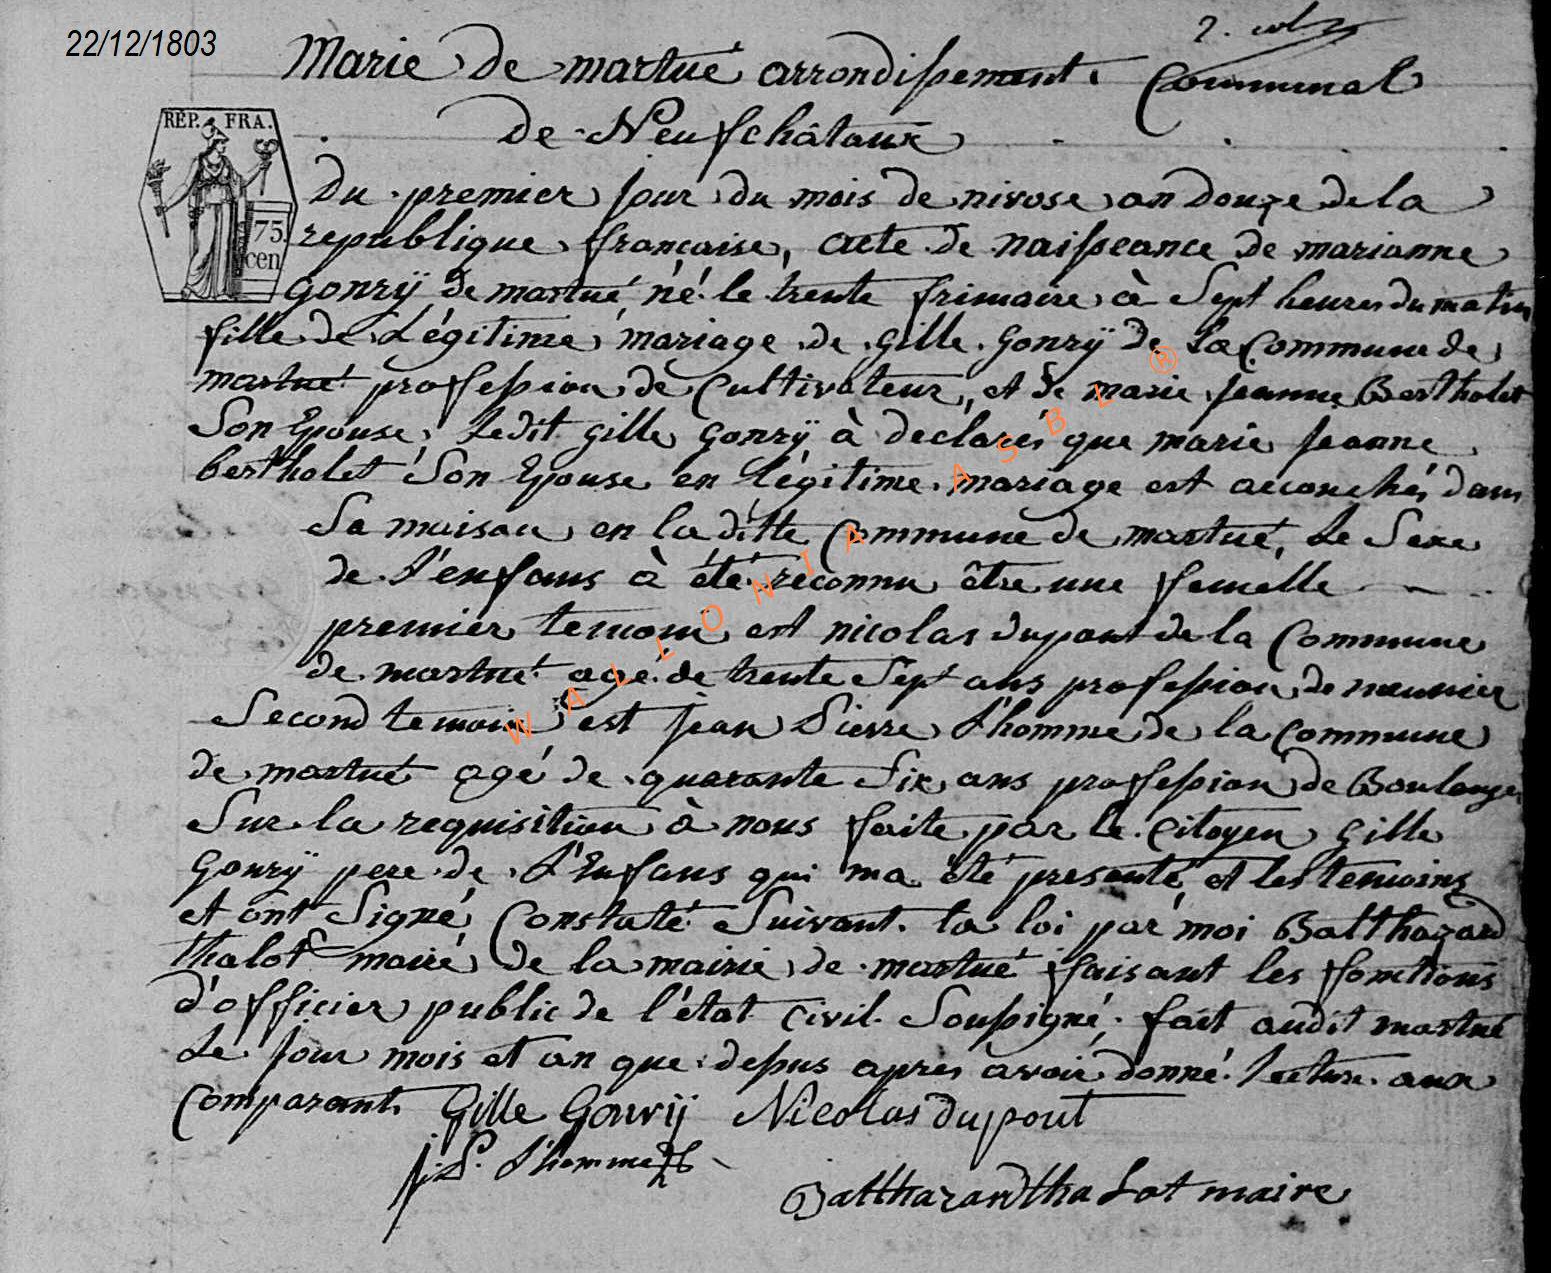 22/12/1803
Marie de martué arrondissement Communal
de Neufchâtaux
RÉP. FRA.
75.
cen
Du premier jour du mois de nivose an douze de la
republique française, acte de naisseance de marianne
gonrÿ de martué né le trente frimaire à Sept heures du matin
fille de Légitime mariage de gille gonrÿ de la Commune de
martué profession de Cultivateur, et de marie jeanne Bertholet
Son Epouse, Ledit gille gonrÿ à declarés que marie jeanne
bertholet Son Epouse en légitime mariage est accouchés dans
Sa maison en la ditte Commune de martué, Le Sexe
de l'enfans à été reconnu être une femelle
premier temoin est nicolas dupont de la Commune
de martué agé de trente Sept ans profession de meunier
Second temoin est jean Pierre l'homme de la Commune
de martué agé de quarante Six ans profession de Boulanger
Sur la requisition à nous faite par le Citoyen gille
gonrÿ pere de l'Enfans qui ma été presenté et les temoins
et ont Signé, Constaté Suivant la loi par moi Balthazard
thalot maire de la mairie de martué faisant les fonctions
d'officier public de l'état Civil Soussigné, fait audit martué
Le jour mois et an que dessus apres avoir donné lecture aux
Comparant Gille Gonrÿ Nicolas dupont
j. P. l'homme
Balthazard thalot maire
WALLONIA ASBL ®